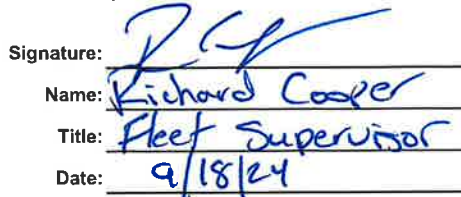 Signature:
Name: Richard Cooper
Title: Fleet Supervisor
Date: 9/18/24